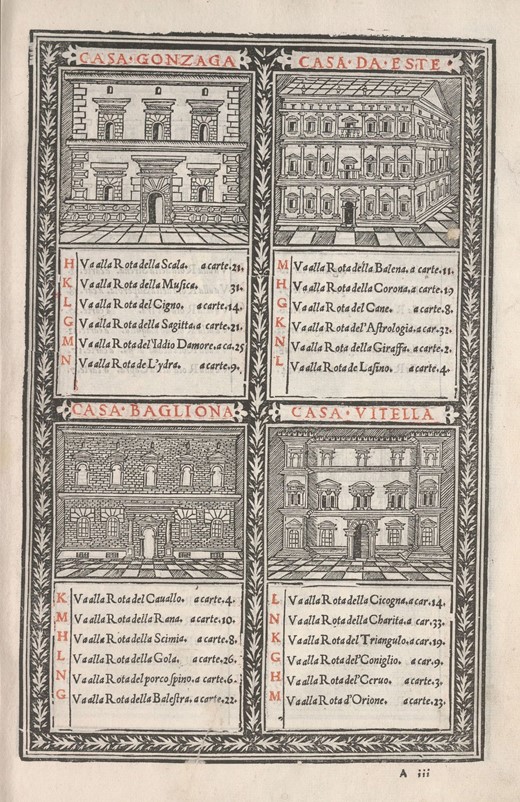 CASA·GONZAGA
H Va alla Rota della Scala. a carte. 21.
K Va alla Rota della Musica. 31.
L Va alla Rota del Cigno. a carte. 14.
G Va alla Rota della Sagitta. a carte. 21.
M Va alla Rota del'Iddio Damore. a ca. 25
N Va alla Rota de L'ydra. a carte. 9.
CASA·DA·ESTE
M Va alla Rota della Balena. a carte. 11.
H Va alla Rota della Corona. a carte. 19
G Va alla Rota del Cane. a carte. 8.
K Va alla Rota del'Astrologia. a car. 32.
N Va alla Rota della Giraffa. a carte. 2.
L Va alla Rota de Lasino. a carte. 4.
CASA·BAGLIONA
K Va alla Rota del Cauallo. a carte. 4.
M Va alla Rota della Rana. a carte. 10.
H Va alla Rota della Scimia. a carte. 8.
L Va alla Rota della Gola. a carte. 26.
N Va alla Rota del porco spino. a carte. 6.
G Va alla Rota della Balestra. a carte. 22.
CASA·VITELLA
L Va alla Rota della Cicogna. a car. 14.
N Va alla Rota della Charita. a car. 33.
K Va alla Rota del Triangulo. a car. 19.
G Va alla Rota del'Coniglio. a car. 9.
H Va alla Rota del'Ceruo. a carte. 3.
M Va alla Rota d'Orione. a carte. 23.
A iii